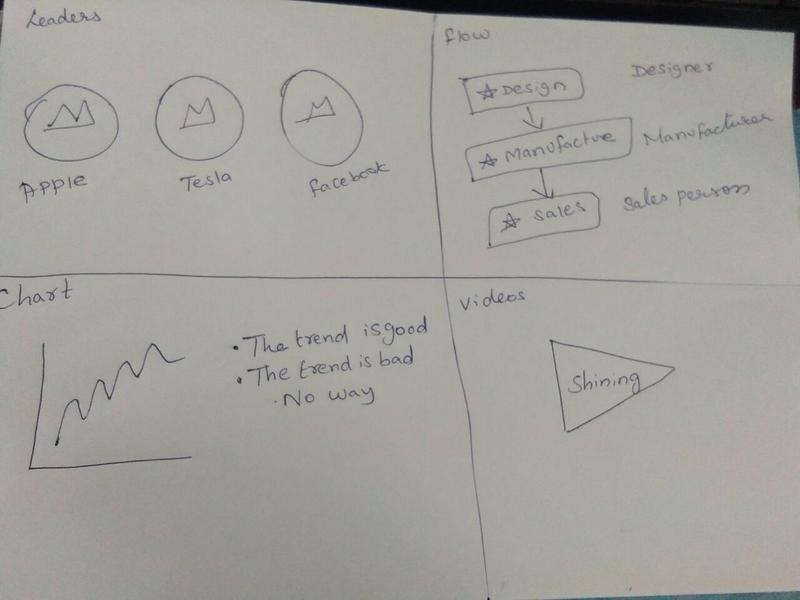 Leaders
Apple
Tesla
facebook
flow
☆ Design
Designer
☆ Manufacture
Manufacturer
☆ sales
Sales person
Chart
• The trend is good
• The trend is bad
· No way
Videos
Shining